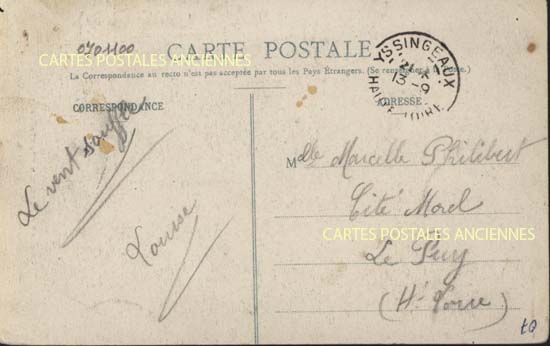 0701100
CARTE POSTALE
CARTES POSTALES ANCIENNES
La Correspondance au recto n'est pas acceptée par tous les Pays Étrangers. (Se renseigner à la Poste.)
YSSINGEAUX
13-9
HAUTE-LOIRE
CORRESPONDANCE
ADRESSE
Le vent souffle
Louise
Mlle Marcelle Philibert
Cité Morel
CARTES POSTALES ANCIENNES
Le Puy
(Hte Loire)